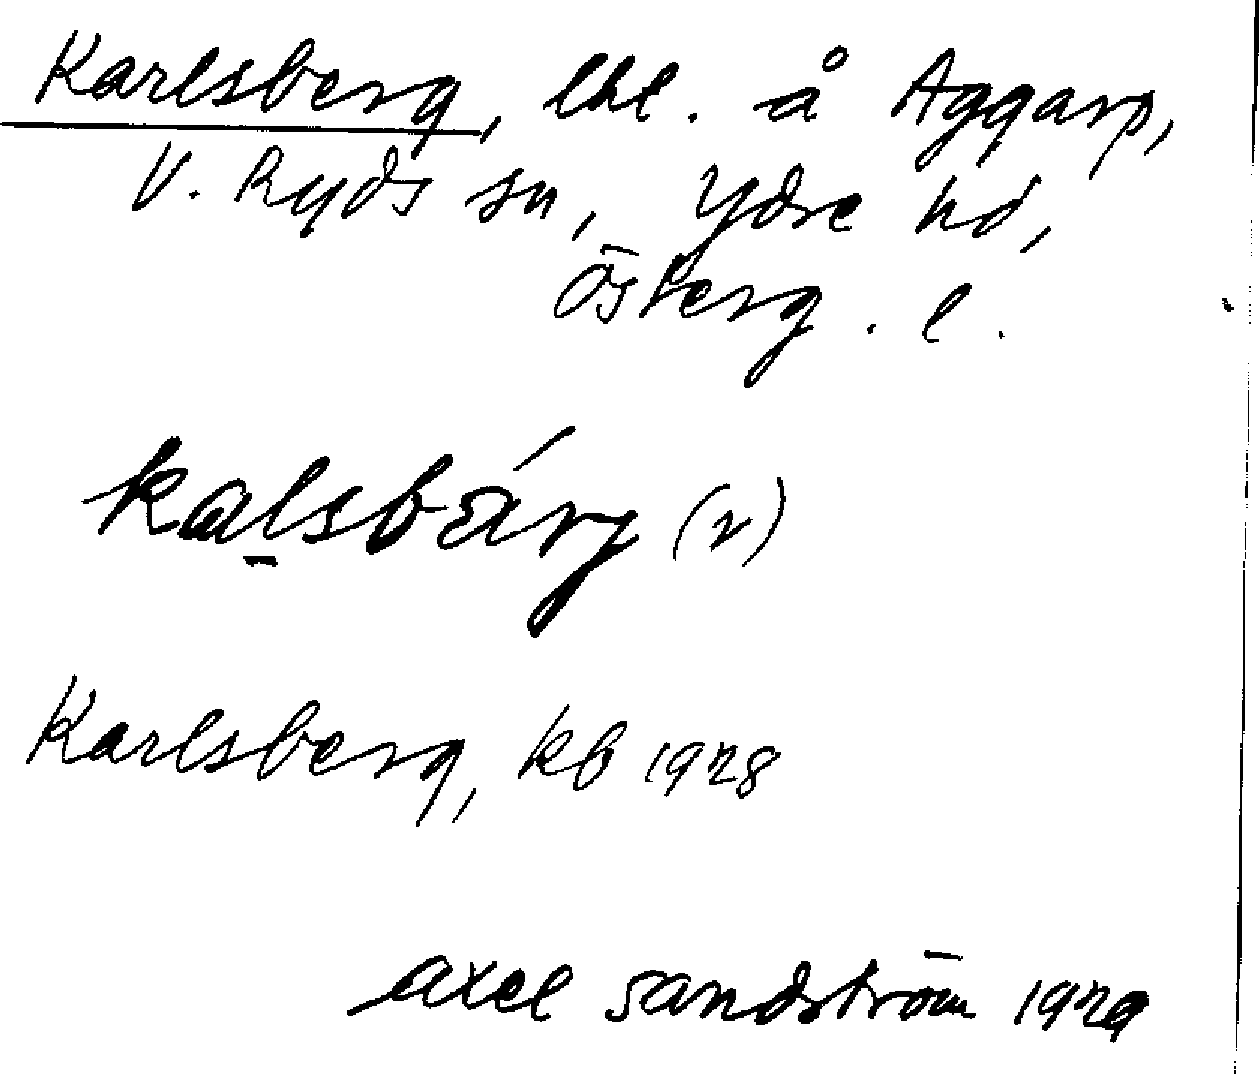 Karlsberg, lht. å Aggarp,
V. Ryds sn, Ydre hd,
Österg. l.
kalsbárg (r)
Karlsberg, kb 1928
Axel Sandström 1929